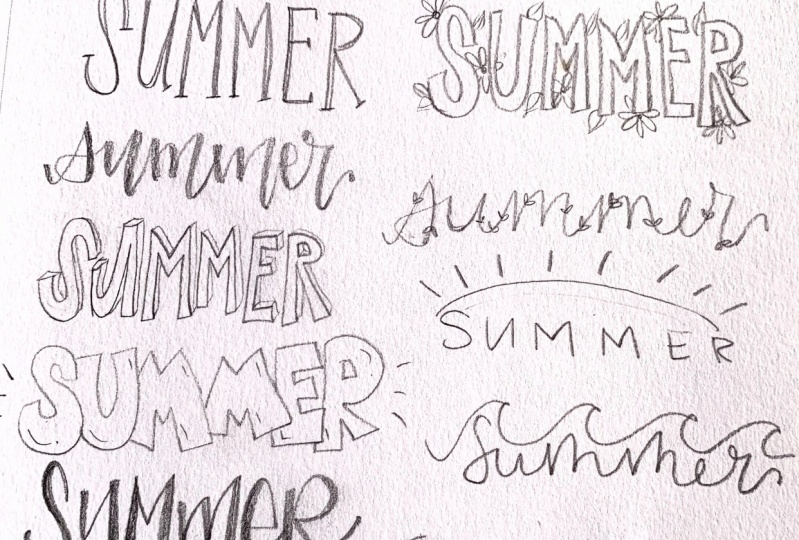 SUMMER
summer
SUMMER
SUMMER
SUMMER
SUMMER
summer
SUMMER
summer